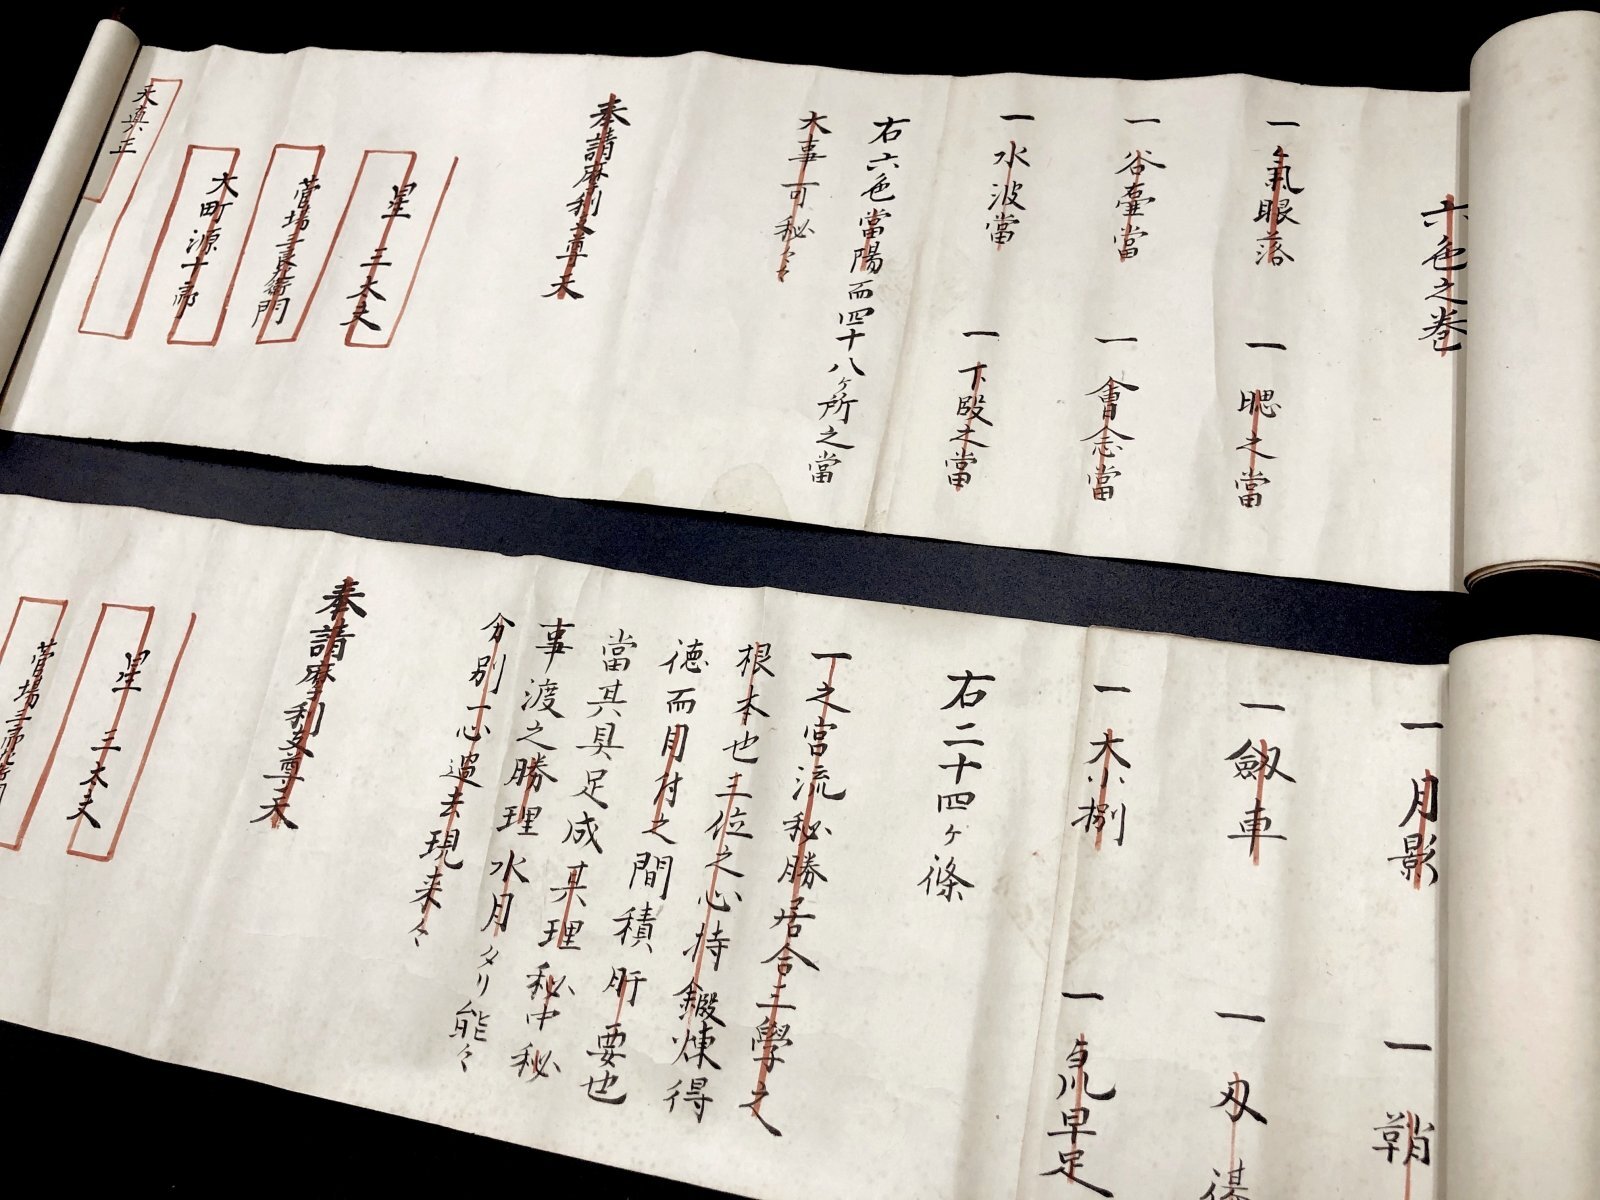 六色之巻
一 氣眼落
一 腮之當
一 谷臺當
一 會念當
一 水波當
一 下段之當
右六色當陽而四十八ヶ所之當
大事可秘々々
奉請麻利支尊天
星 三太夫
菅場三良兵衛門
大町源十郎
天真正
一 月影
一 鞘
一 劔車
一 刄
一 大小捌
一 氣早足
右二十四ヶ條
一之宮流秘勝居合三學之
根本也三位之心持鍛煉得
徳而月付之間積肝要也
當其具足成其理秘中秘
事渡之勝理水月タリ能々
分別一心過去現来々々
奉請麻利支尊天
星 三太夫
菅場三